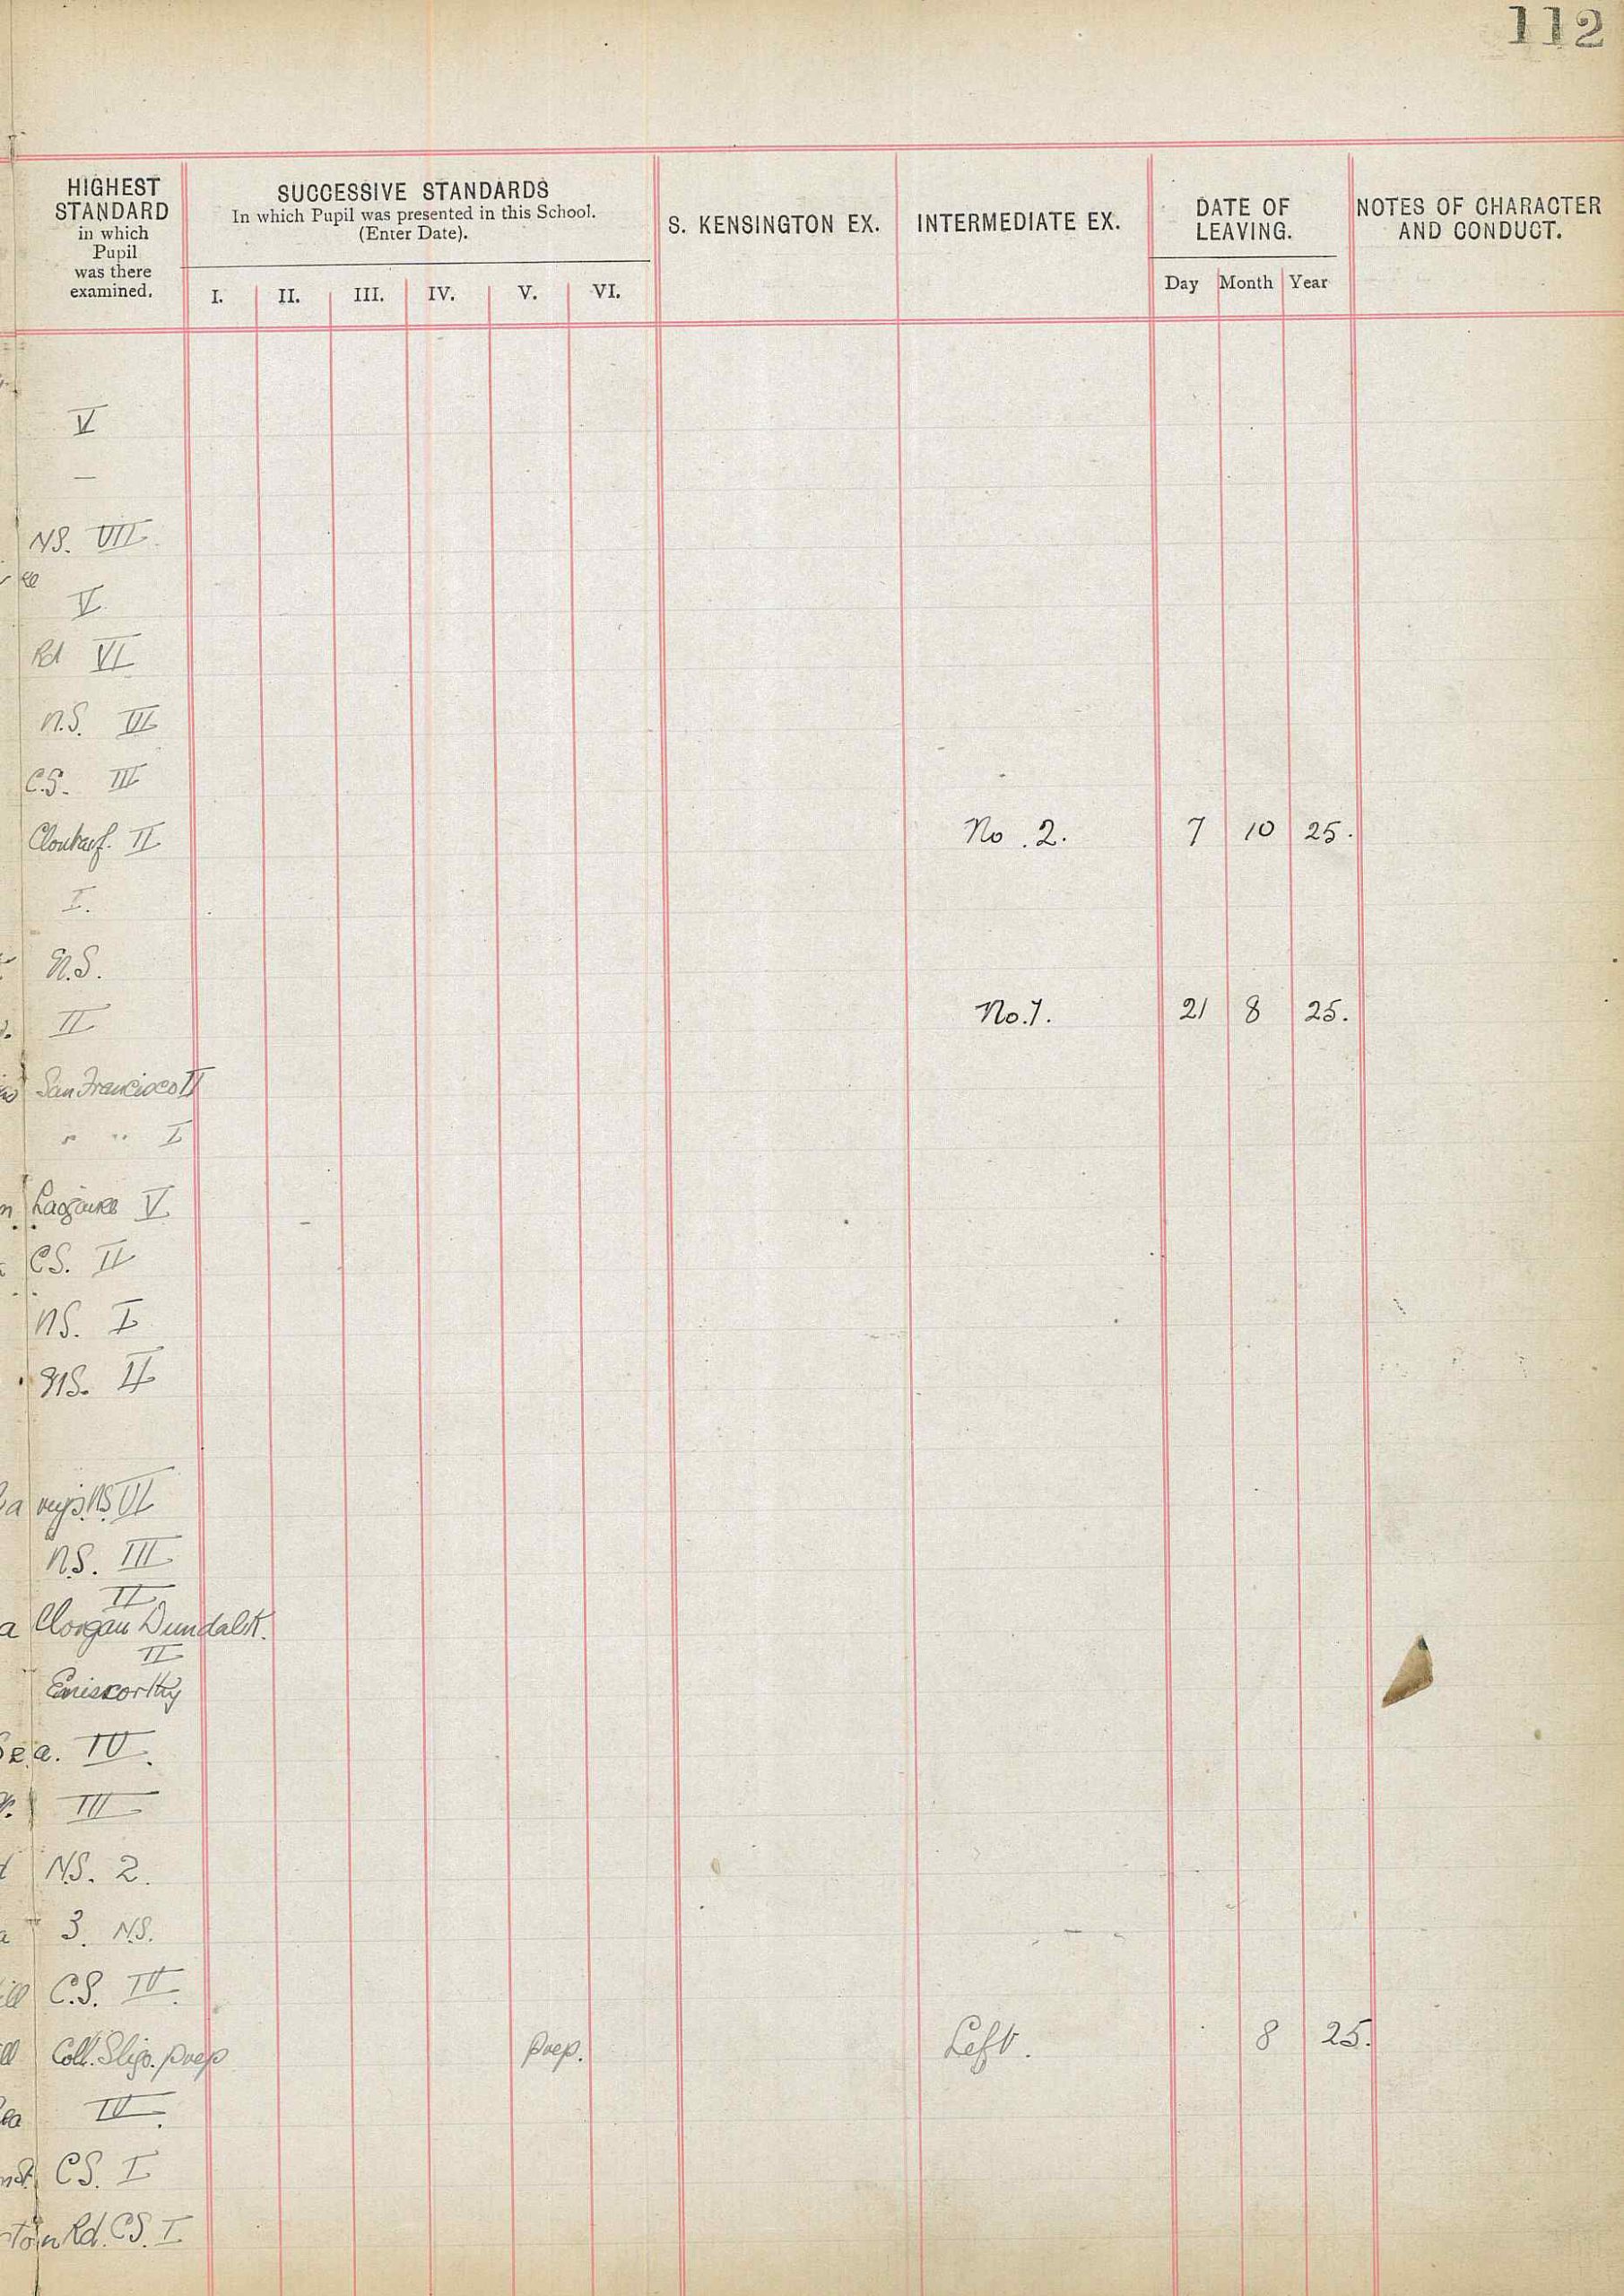 112
HIGHEST STANDARD in which Pupil was there examined.
SUCCESSIVE STANDARDS
In which Pupil was presented in this School.
(Enter Date).
I. II. III. IV. V. VI.
S. KENSINGTON EX.
INTERMEDIATE EX.
DATE OF LEAVING.
Day Month Year
NOTES OF CHARACTER AND CONDUCT.
V
—
N.S. VII
V
Rd VI
N.S. VI
C.S. III
II No. 2. 7 10 25.
I.
N.S.
II No. 1. 21 8 25.
San Francisco II
" " I
V
C.S. II
N.S. I
N.S. II
N.S. VI
N.S. III
II
Clorgan Dundalk.
II
Eniscorthy
Sea. IV.
III
N.S. 2.
3. N.S.
C.S. IV.
Coll. Sligo. prep prep. Left. 8 25.
IV.
C.S. I
Rd. C.S. I